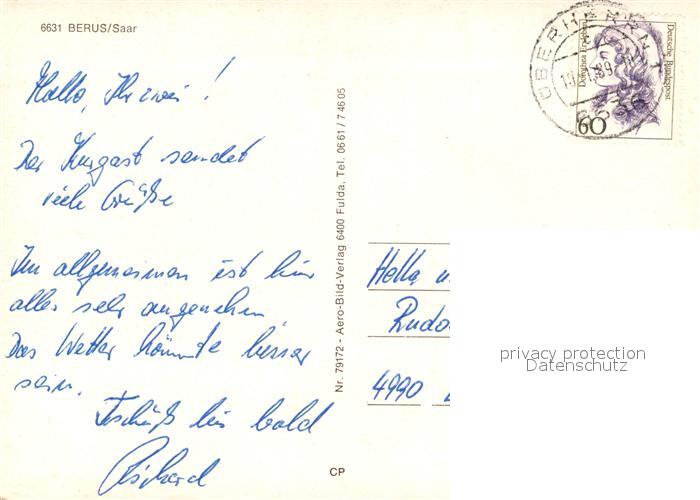 6631 BERUS/Saar
Hallo, Ihr zwei!
Der Kurgast sendet
viele Grüße
Im allgemeinen ist hier
alles sehr angenehm
Das Wetter könnte besser
sein.
Tschüß bis bald
Richard
Nr. 79172 - Aero-Bild-Verlag 6400 Fulda, Tel. 06 61 / 7 46 05
CP
Dorothea Erxleben
Deutsche Bundespost
60
ÜBERHERRN 1
Hella u.
Rudo
4990
privacy protection
Datenschutz